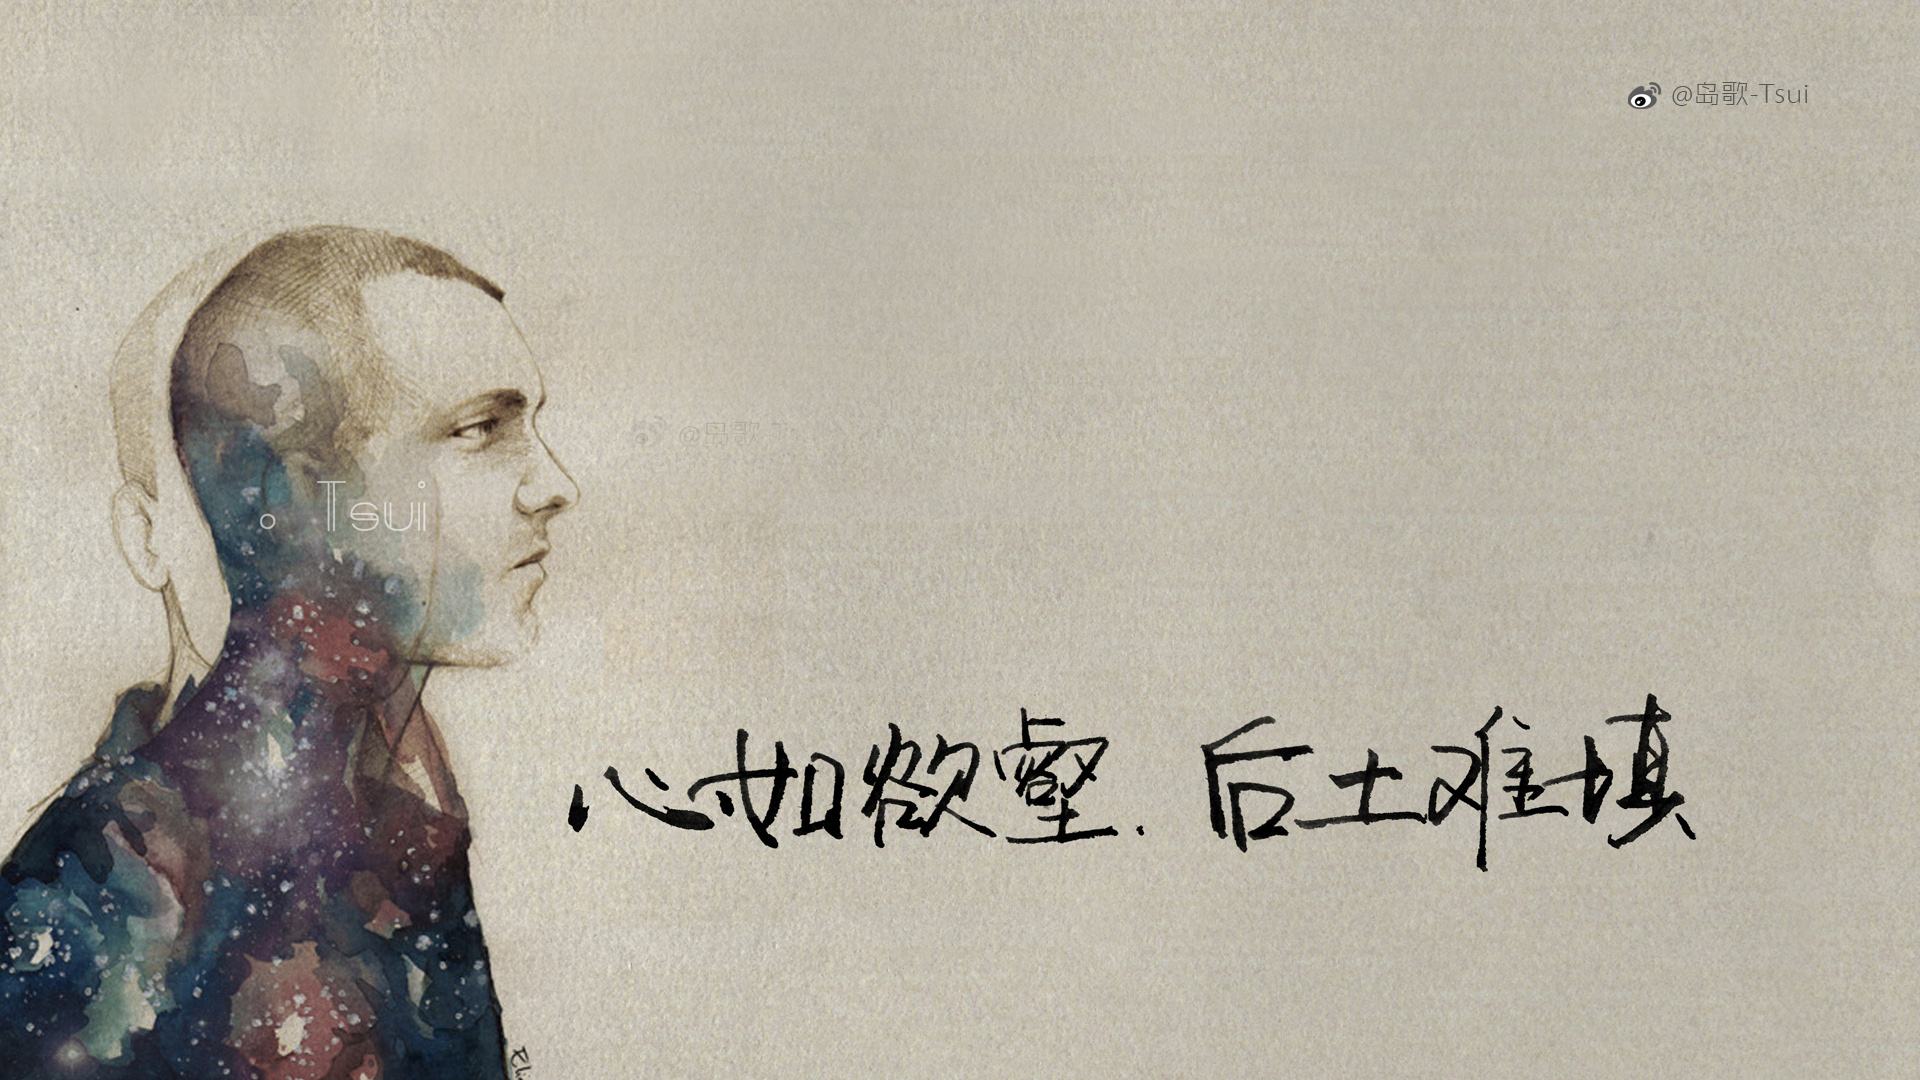 @岛歌-Tsui
@岛歌-T
Tsui
心如欲壑.后土难填